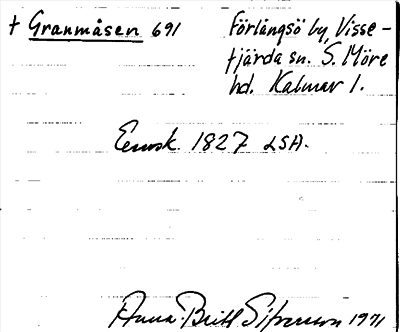 † Granmåsen 691 Förlångsö by, Visse-
fjärda sn. S. Möre
hd. Kalmar l.
Ensk. 1827 LSA.
Anna-Britt Sifversson 1971